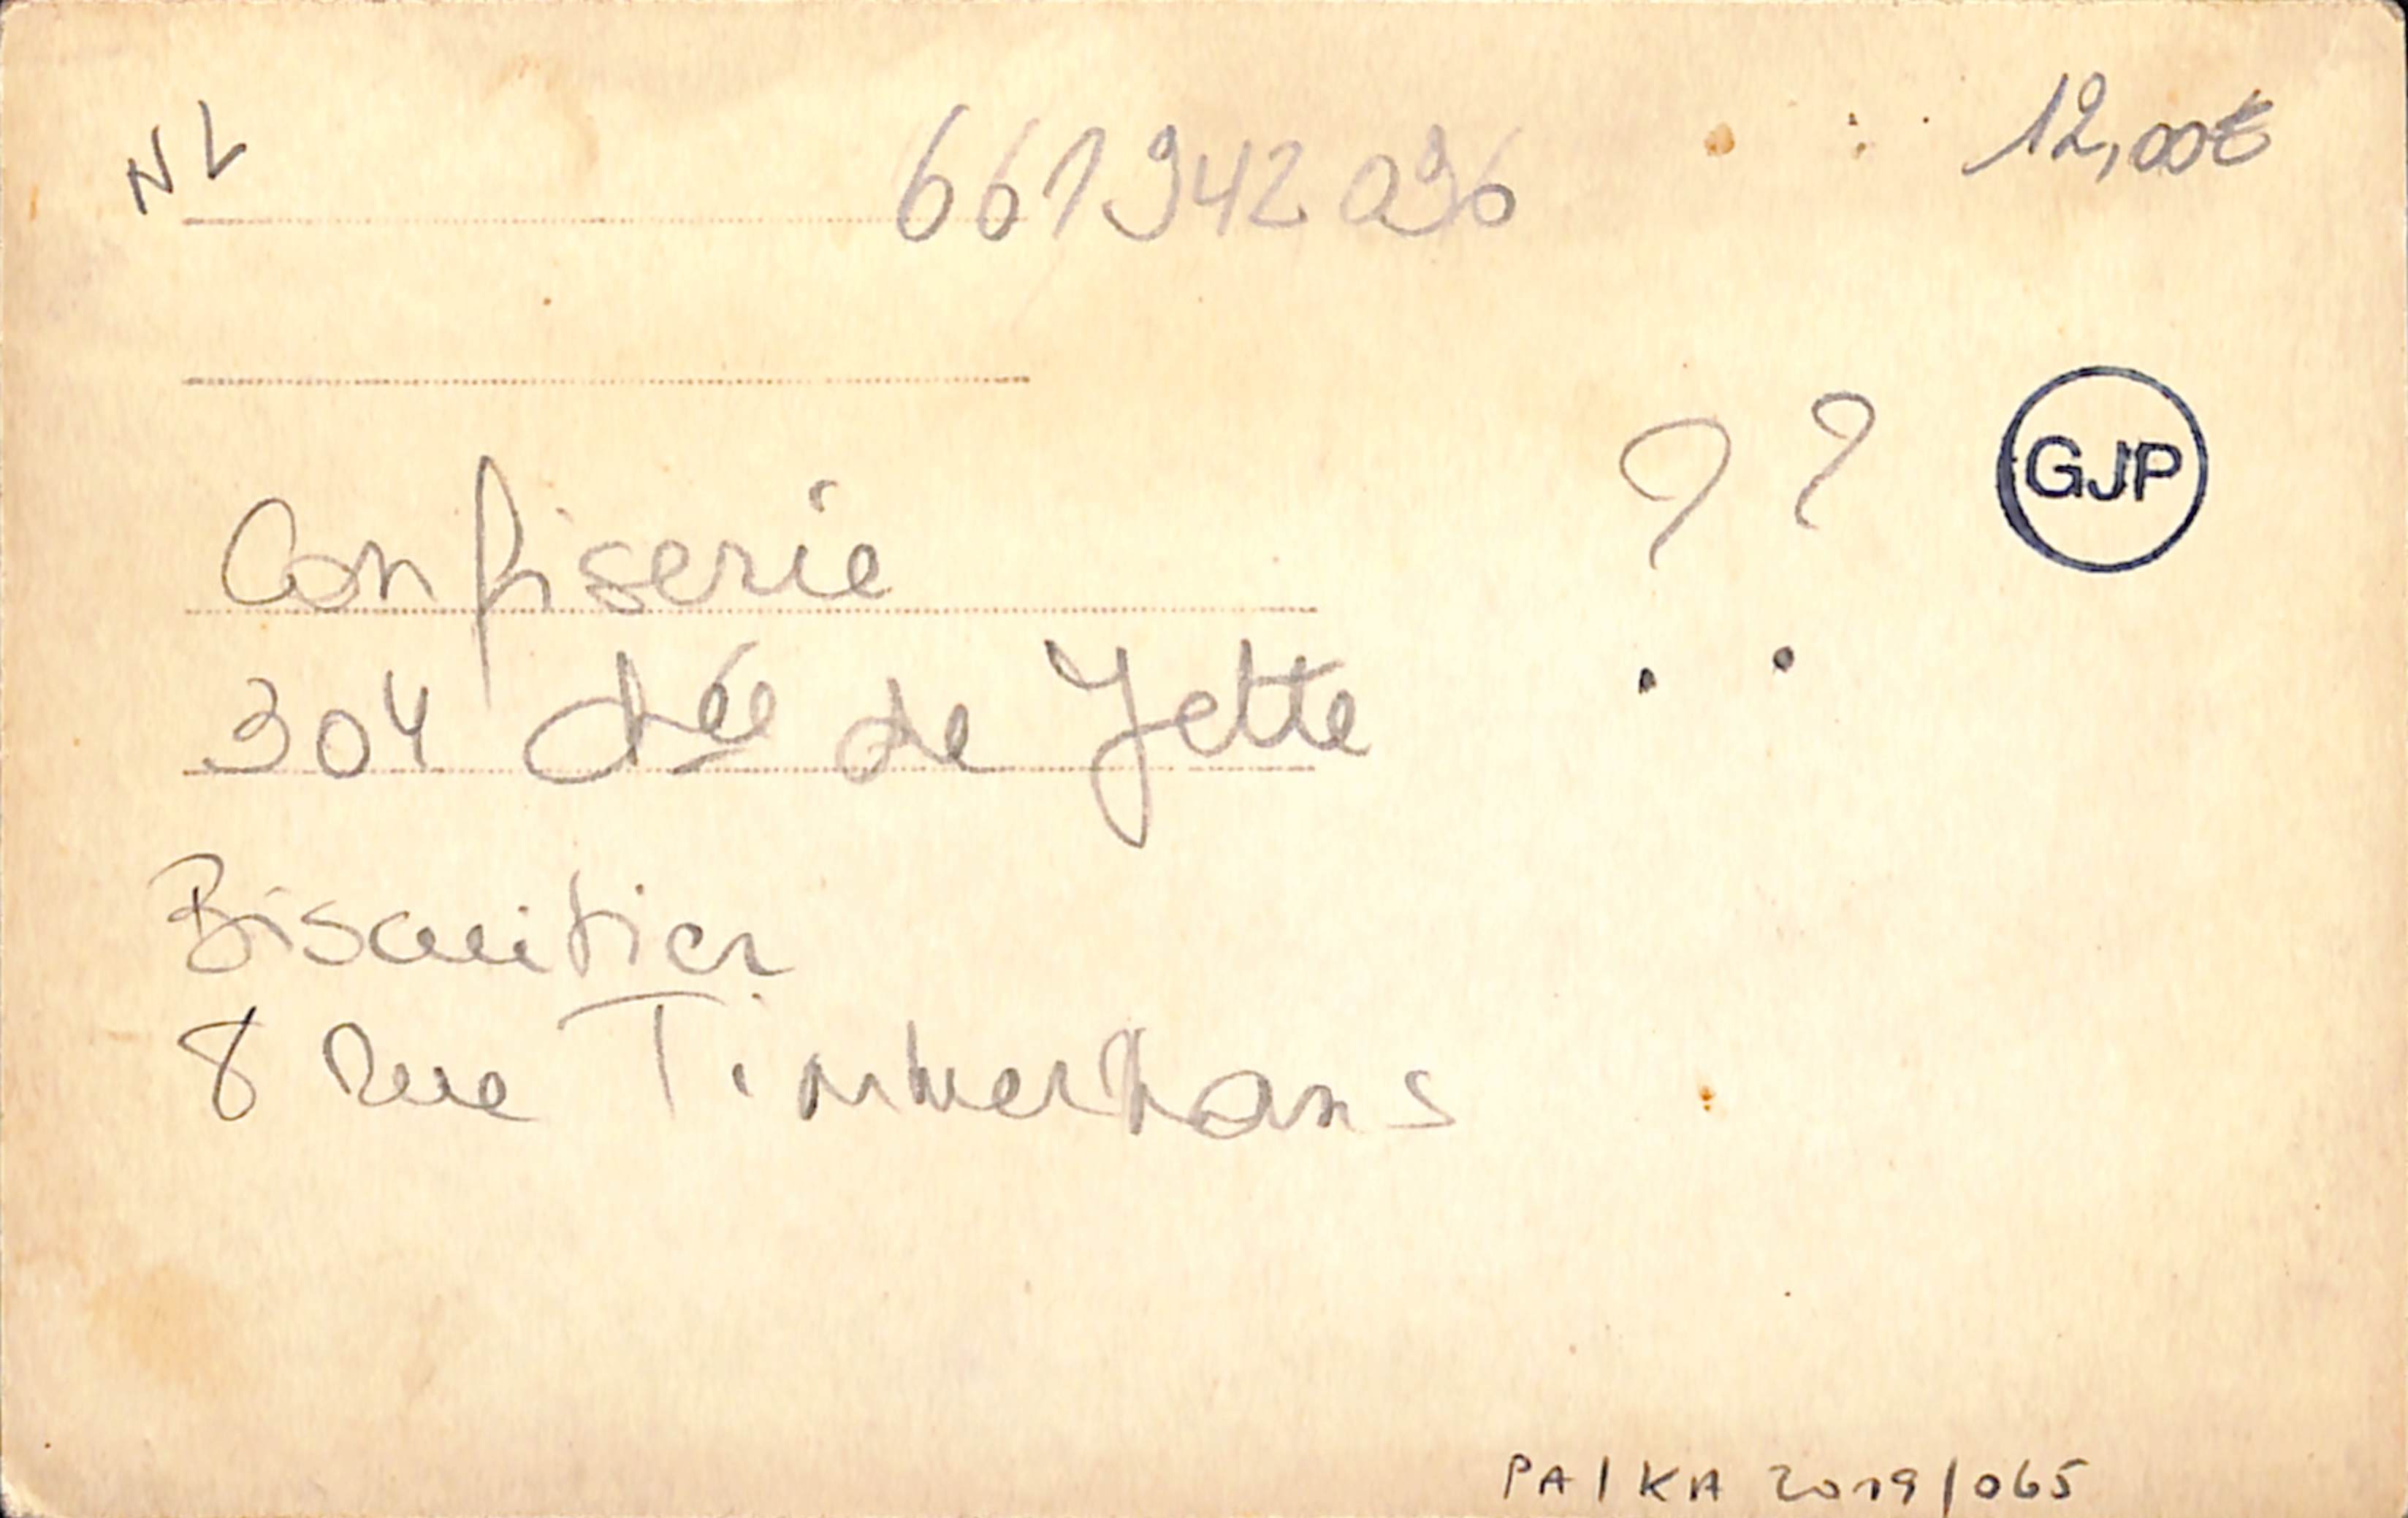 NL 661942096 12,00€
?? GJP
Confiserie
304 chée de Jette
Biscuitier
8 Rue Timmermans
PA/KA 2019/065